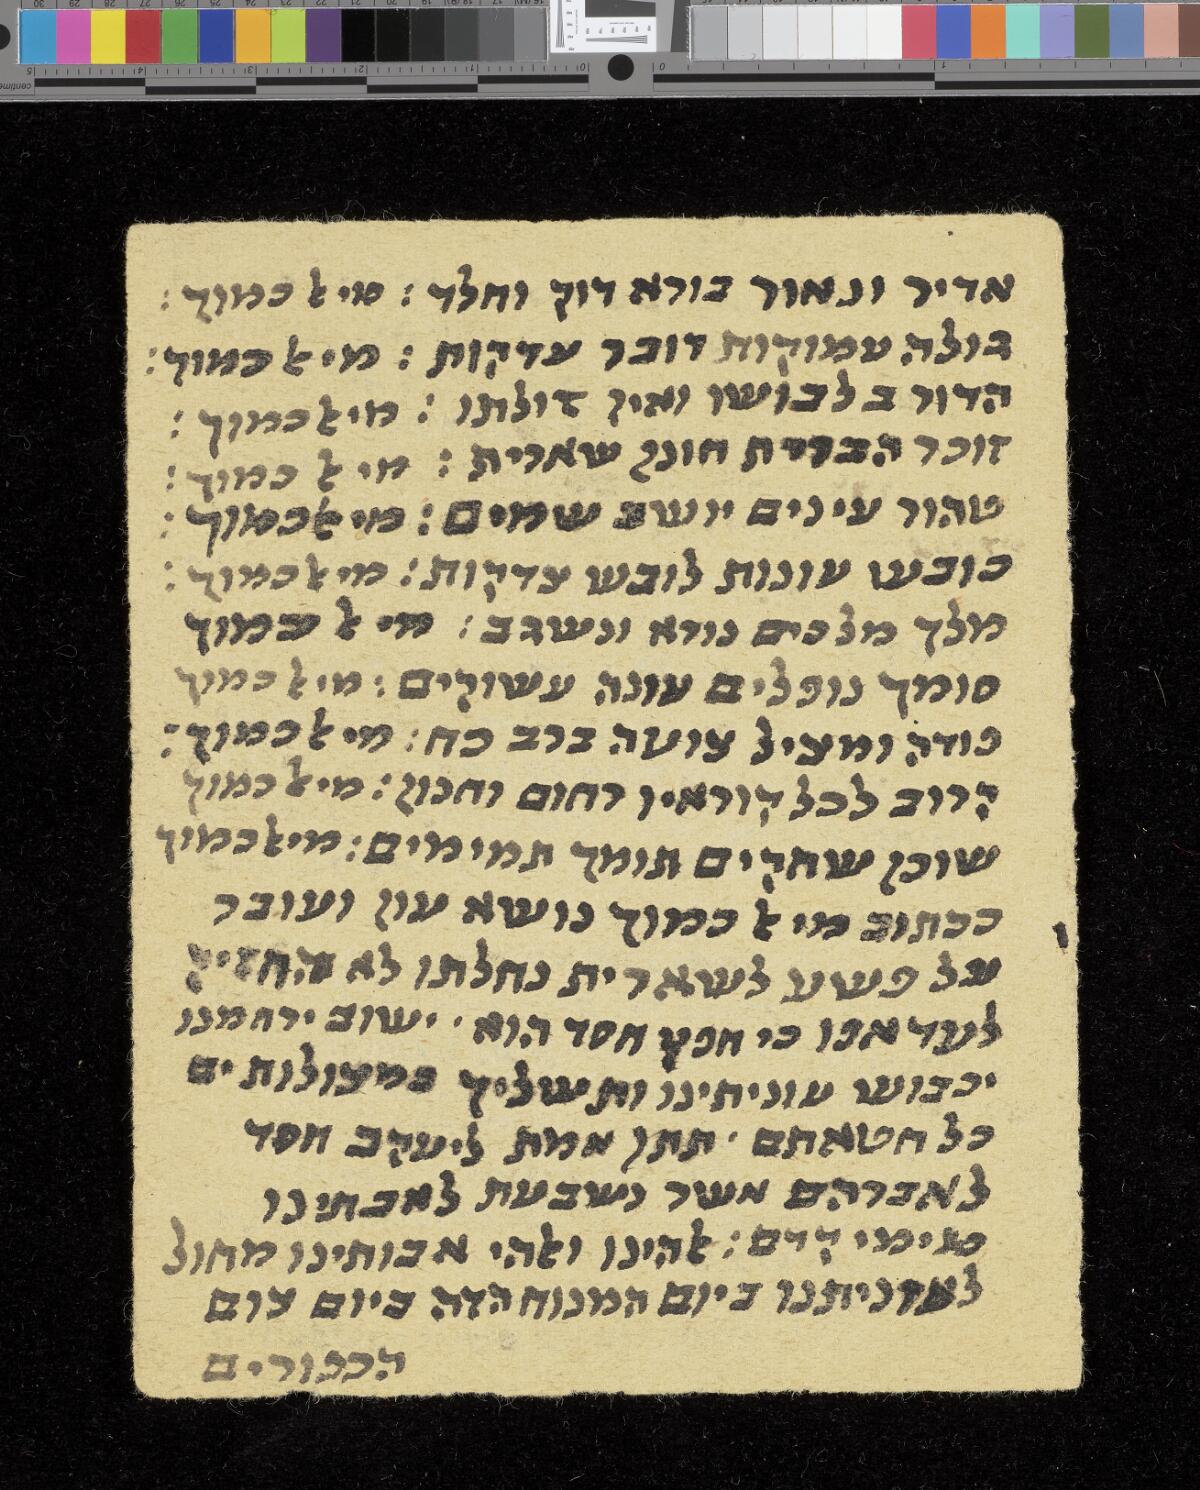 אדיר ונאור בורא דוק וחלד : מי ﭏ כמוך :
גולה עמוקות דובר צדקות : מי ﭏ כמוך :
הדור בלבושו ואין זולתו : מי ﭏ כמוך :
זוכר הברית חונן שארית : מי ﭏ כמוך :
טהור עינים יושב שמים : מי ﭏ כמוך :
כובש עונות לובש צדקות : מי ﭏ כמוך :
מלך מלכים נורא ונשגב : מי ﭏ כמוך
סומך נופלים עונה עשוקים : מי ﭏ כמוך
פודה ומציל צועה ברב כח : מי ﭏ כמוך :
קרוב לכל קוראיו רחום וחנון : מי ﭏ כמוך
שוכן שחקים תומך תמימים : מי ﭏ כמוך
ככתוב מי ﭏ כמוך נושא עון ועובר
על פשע לשארית נחלתו לא החזיק
לעד אפו כי חפץ חסד הוא · ישוב ירחמנו
יכבוש עוניתינו ותשליך במצולות ים
כל חטאתם · תתן אמת ליעקב חסד
לאברהם אשר נשבעת לאבתינו
מימי קדם : ﭏהינו וﭏהי אבותינו מחול
לעוניתנו ביום המנוח הזה ביום צום
הכפורים